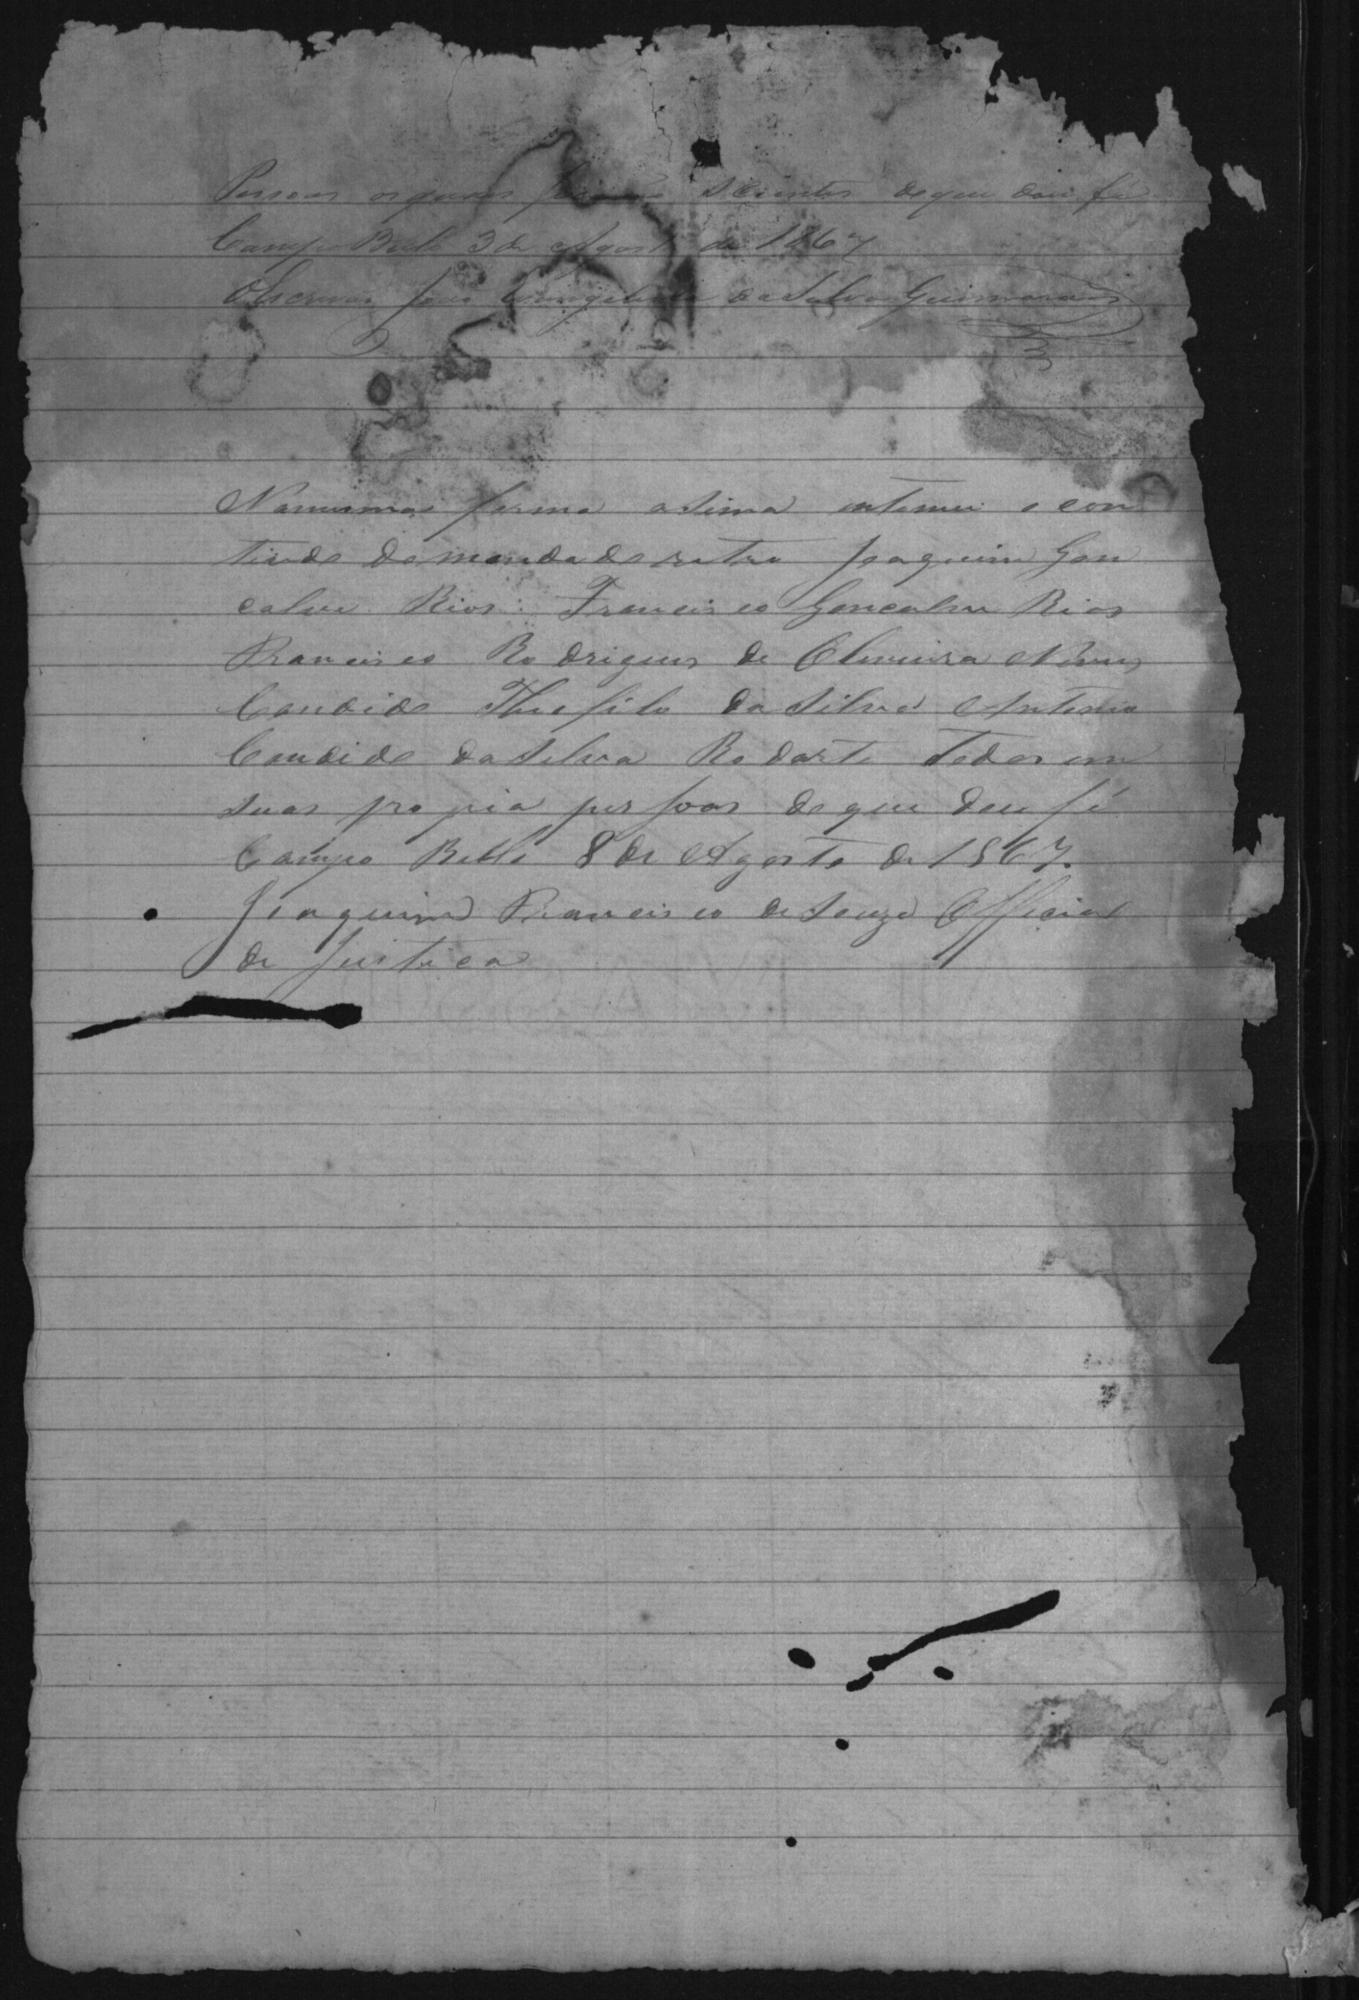 Pessoas os quaes ficarão scientes de que dou fé
Campo Bello 3 de Agosto de 1867
O Escrivão João Evangelista da Silva Guimarães
Namesma forma asima intimei o con
tiudo do mandado retro Joaquim Gon
calves Rios: Francisco Goncalves Rios
Francisco Rodrigues de Oliveira Neves
Candido Theofilo da Silva Antonio
Candido da Silva Rodarte Todos em
suas propia pessoas de que dou fé
Campo Bello 8 de Agosto de 1867.
Joaquim Francisco de Souza Official
de Justica